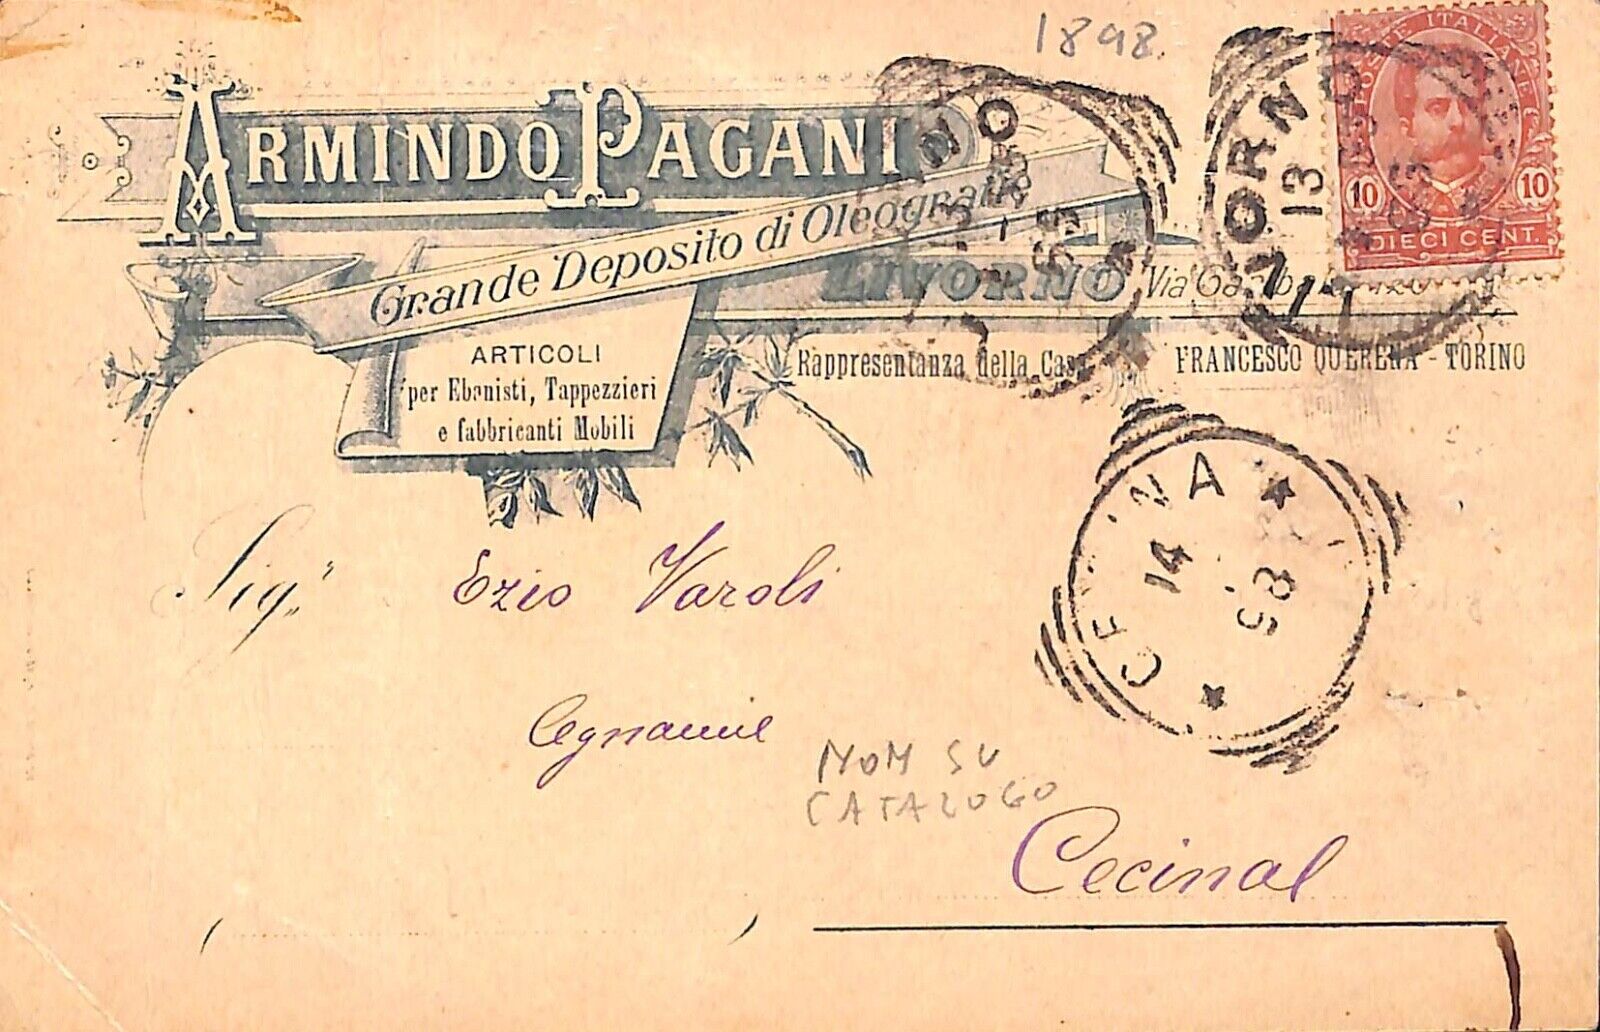 1898
POSTE ITALIANE
10 10
DIECI CENT.
ARMINDO PAGANI
Grande Deposito di Oleografie
LIVORNO Via
ARTICOLI
per Ebanisti, Tappezzieri
e fabbricanti Mobili
Rappresentanza della Casa FRANCESCO QUERENA - TORINO
LIVORNO
13
CECINA
14
98
Sig.r Ezio Varoli
NON SU
CATALOGO
Cecina